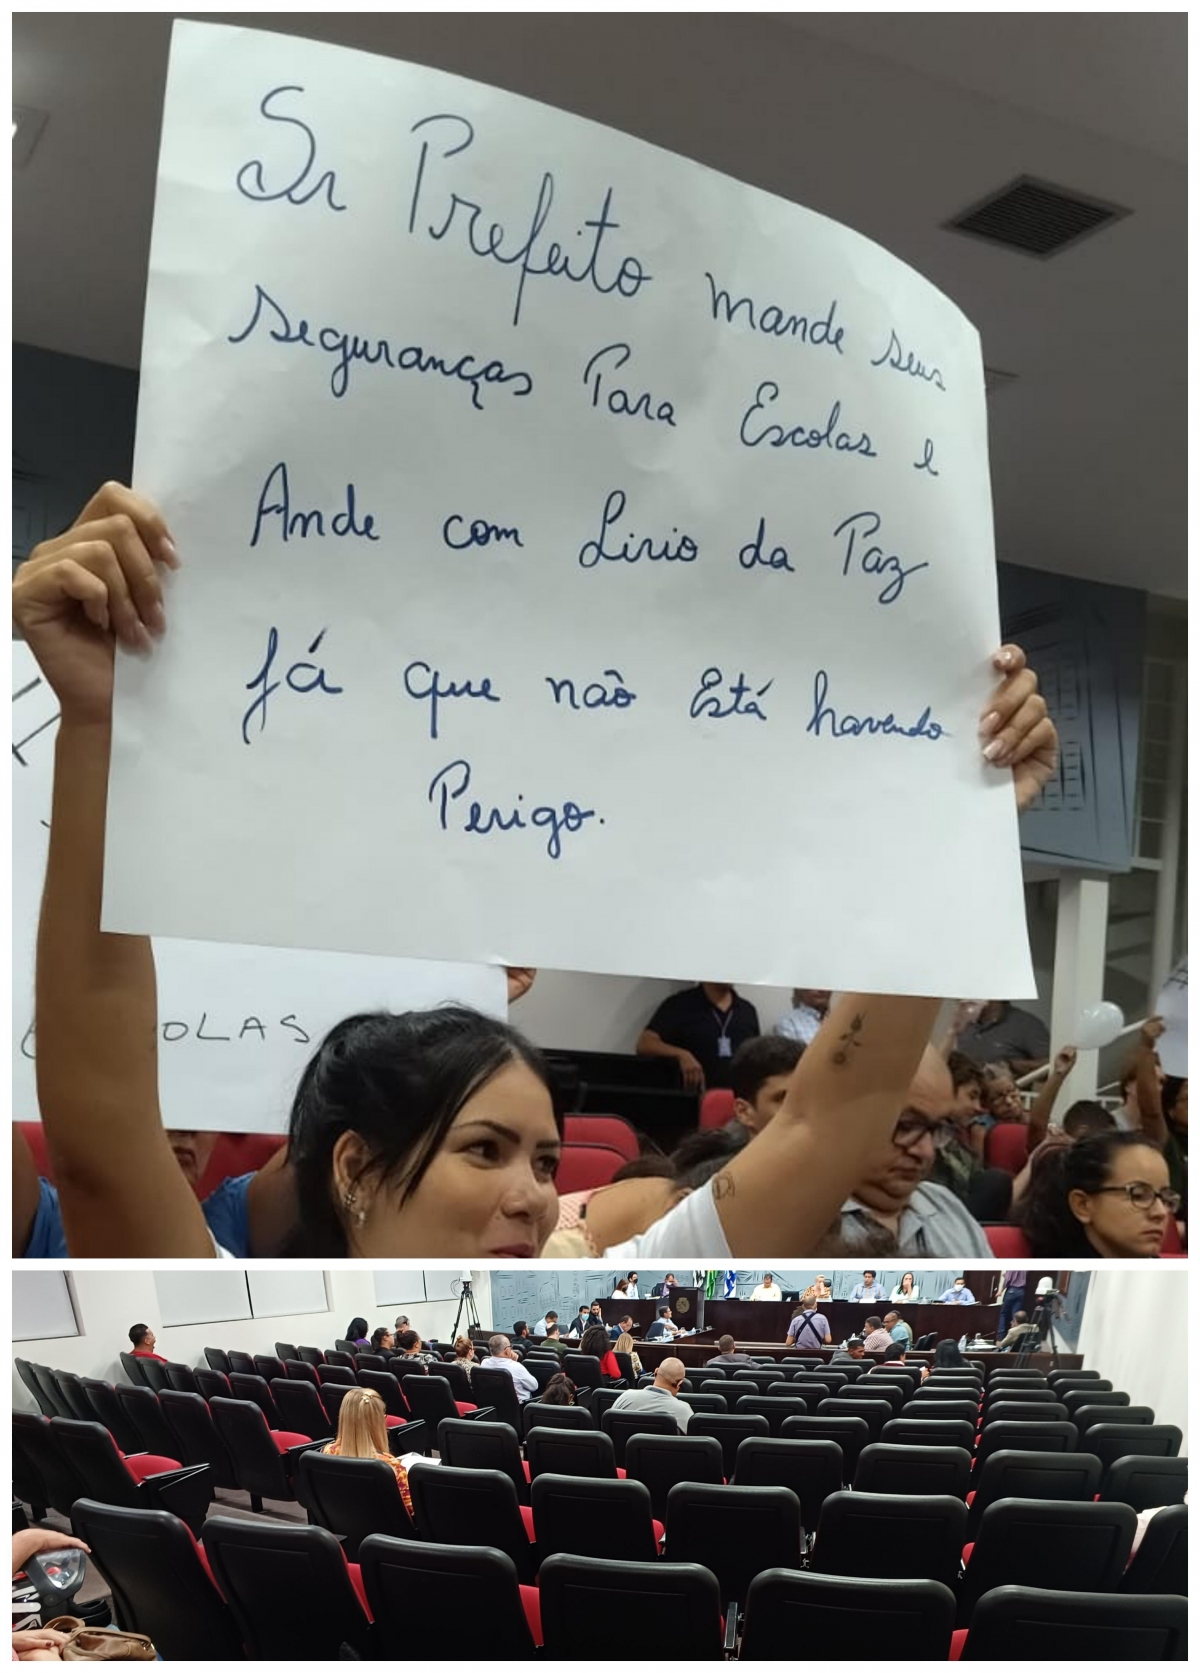 Sr Prefeito mande seus
seguranças Para Escolas e
Ande com Lirio da Paz
já que não Está havendo
Perigo.
OLAS